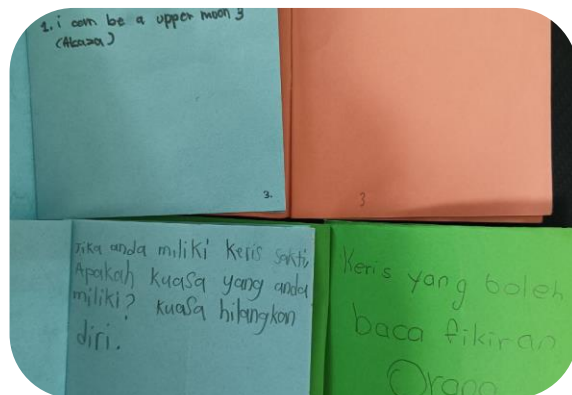 1. i com be a upper moon 3
(Akaza)
3.
3
Jika anda miliki Keris sakti,
Apakah kuasa yang anda
miliki? Kuasa hilangkan
diri.
Keris yang boleh
baca fikiran
Orang